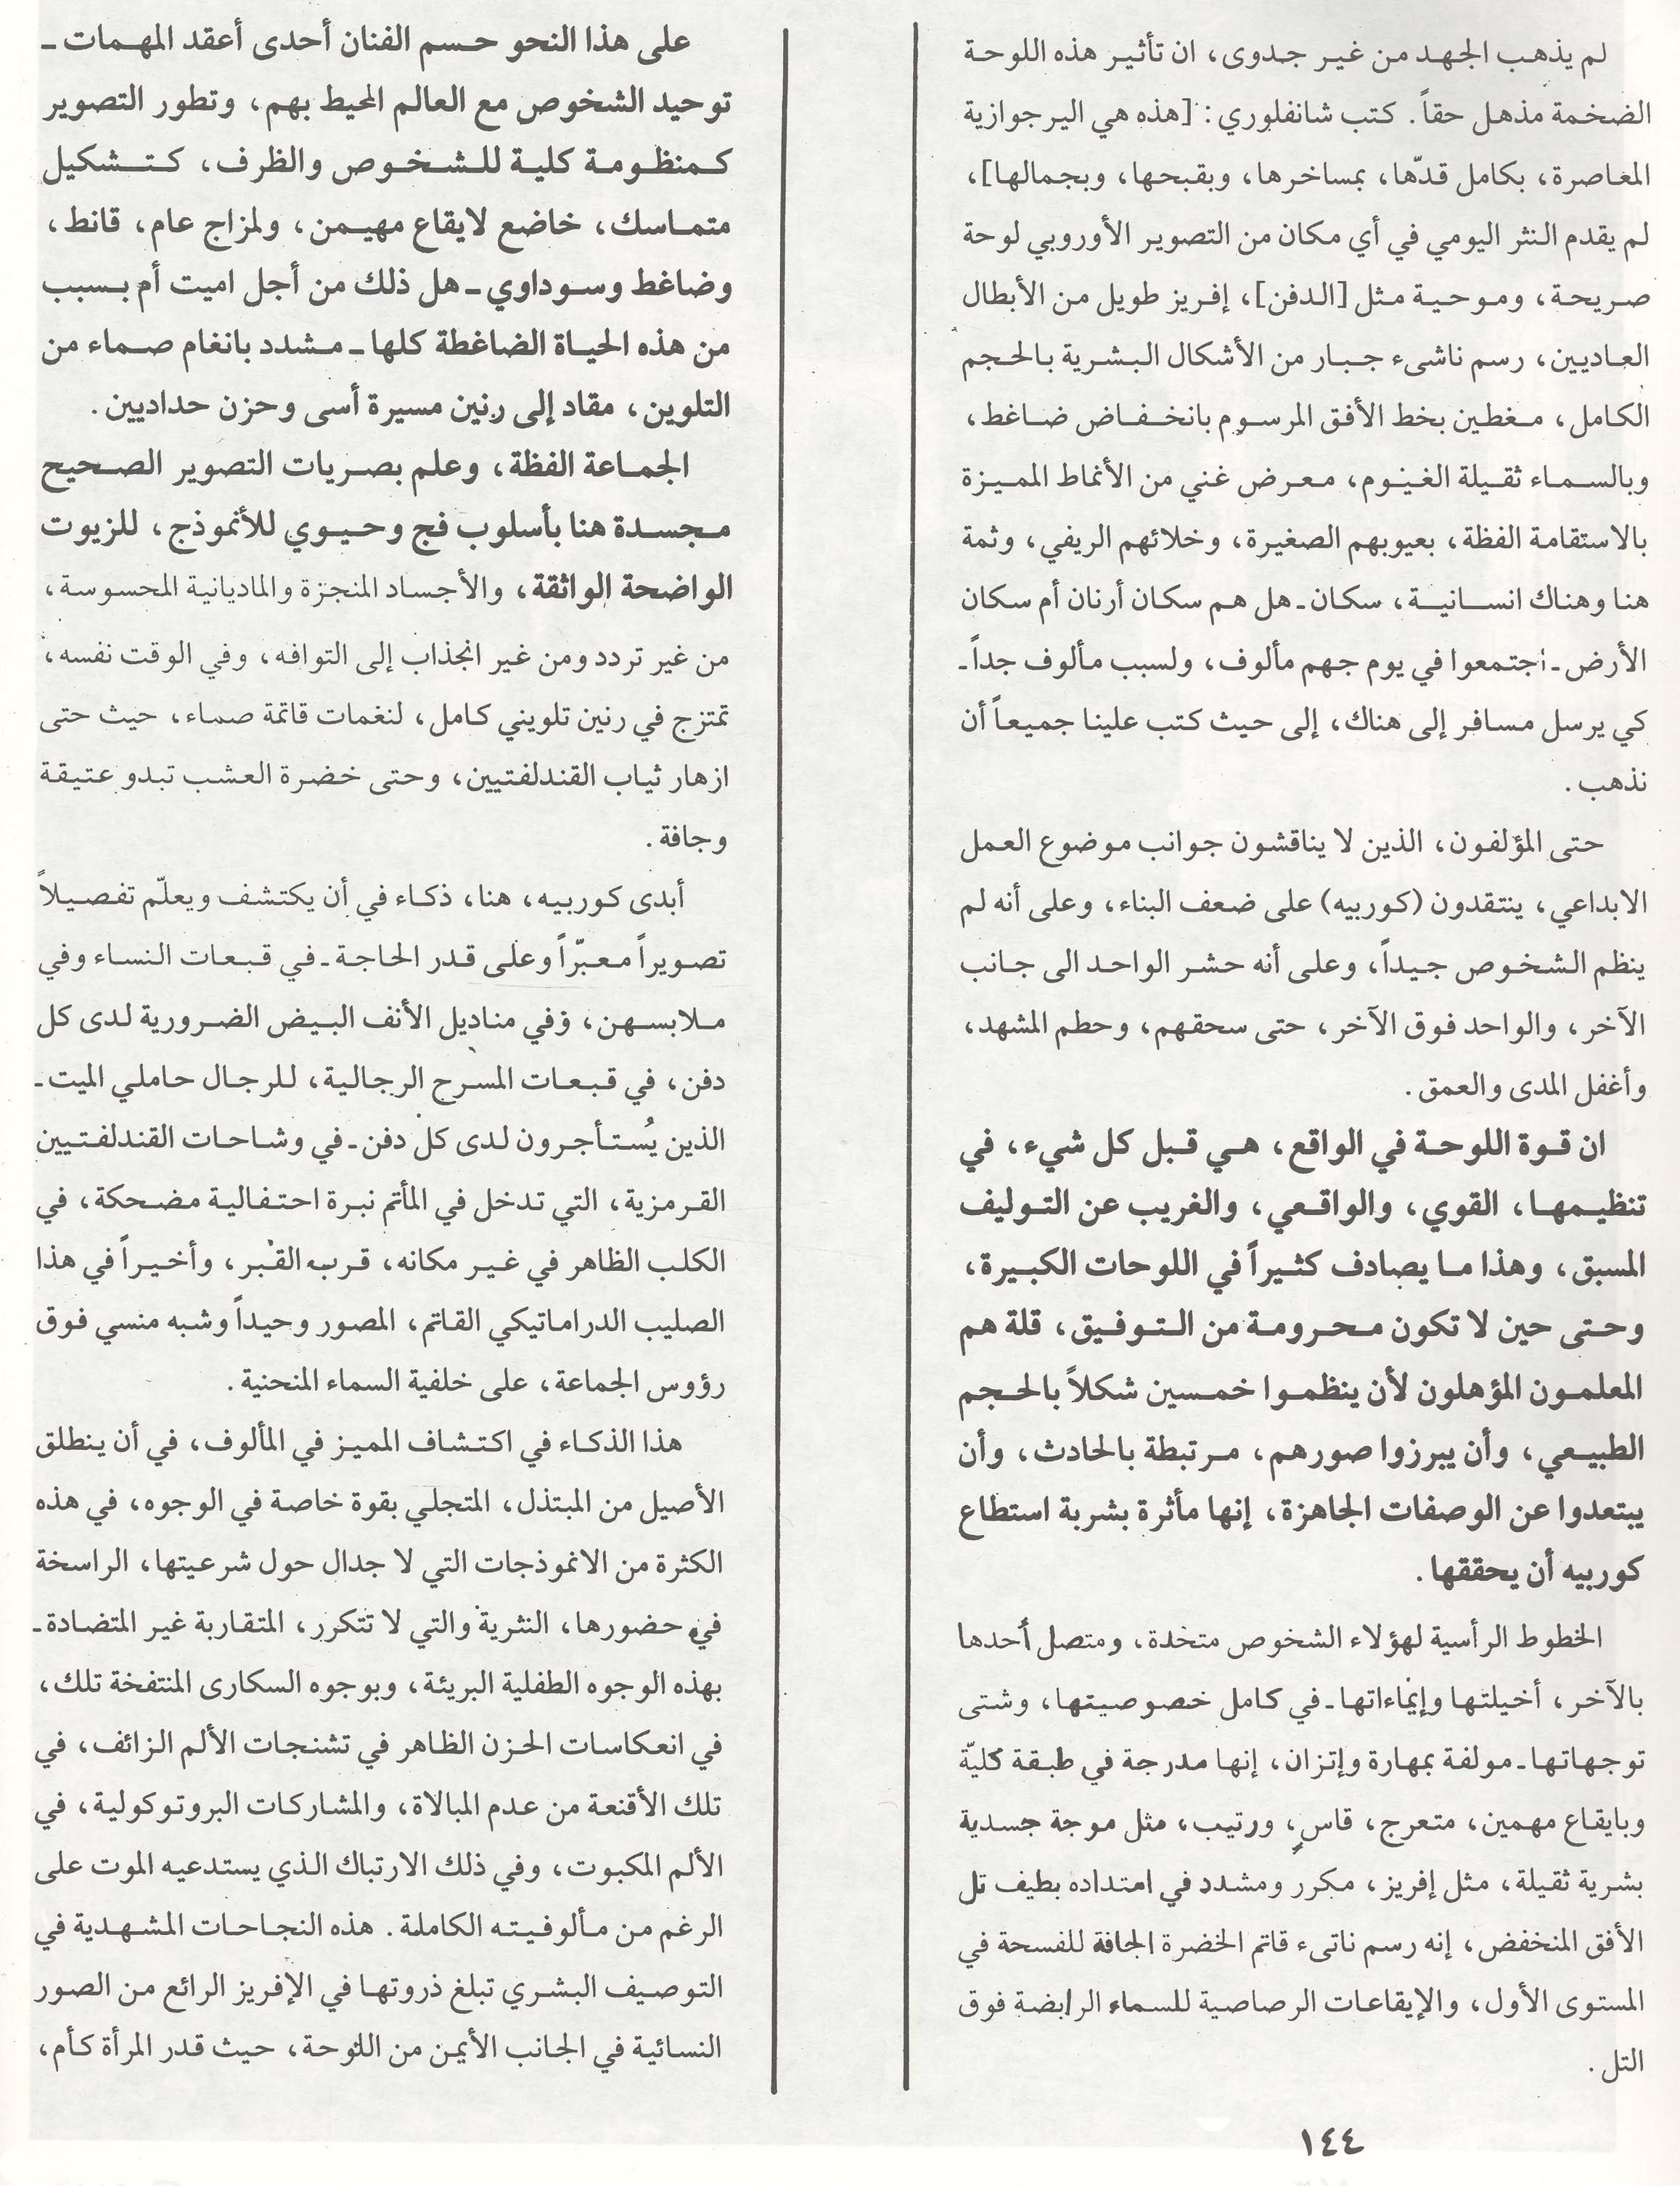 لم يذهب الجهد من غير جدوى، ان تأثير هذه اللوحة
الضخمة مذهل حقاً. كتب شانفلوري: [هذه هي البرجوازية
المعاصرة، بكامل قدّها، بمساخرها، وبقبحها، وبجمالها]،
لم يقدم النثر اليومي في أي مكان من التصوير الأوروبي لوحة
صريحة، وموحية مثل [الدفن]، إفريز طويل من الأبطال
العاديين، رسم ناشىء جبار من الأشكال البشرية بالحجم
الكامل، مغطين بخط الأفق المرسوم بانخفاض ضاغط،
وبالسماء ثقيلة الغيوم، معرض غني من الأنماط المميزة
بالاستقامة الفظة، بعيوبهم الصغيرة، وخلائهم الريفي، وثمة
هنا وهناك انسانية، سكان ـ هل هم سكان أرنان أم سكان
الأرض ـ اجتمعوا في يوم جهم مألوف، ولسبب مألوف جداً ـ
كي يرسل مسافر إلى هناك، إلى حيث كتب علينا جميعاً أن
نذهب.
حتى المؤلفون، الذين لا يناقشون جوانب موضوع العمل
الابداعي، ينتقدون (كوربيه) على ضعف البناء، وعلى أنه لم
ينظم الشخوص جيداً، وعلى أنه حشر الواحد الى جانب
الآخر، والواحد فوق الآخر، حتى سحقهم، وحطم المشهد،
وأغفل المدى والعمق.
ان قوة اللوحة في الواقع، هي قبل كل شيء، في
تنظيمها، القوي، والواقعي، والغريب عن التوليف
المسبق، وهذا ما يصادف كثيراً في اللوحات الكبيرة،
وحتى حين لا تكون محرومة من التوفيق، قلة هم
المعلمون المؤهلون لأن ينظموا خمسين شكلاً بالحجم
الطبيعي، وأن يبرزوا صورهم، مرتبطة بالحادث، وأن
يبتعدوا عن الوصفات الجاهزة، إنها مأثرة بشربة استطاع
كوربيه أن يحققها.
الخطوط الرأسية لهؤلاء الشخوص متخدة، ومتصل أحدها
بالآخر، أخيلتها وإيماءاتها ـ في كامل خصوصيتها، وشتى
توجهاتها ـ مولفة بمهارة وإتزان، إنها مدرجة في طبقة كليّة
وبايقاع مهمين، متعرج، قاسٍ، ورتيب، مثل موجة جسدية
بشرية ثقيلة، مثل إفريز، مكرر ومشدد في امتداده بطيف تل
الأفق المنخفض، إنه رسم ناتىء قاتم الخضرة الجافة للفسحة في
المستوى الأول، والإيقاعات الرصاصية للسماء الرابضة فوق
التل.
على هذا النحو حسم الفنان أحدى أعقد المهمات ـ
توحيد الشخوص مع العالم المحيط بهم، وتطور التصوير
كمنظومة كلية للشخوص والظرف، كتشكيل
متماسك، خاضع لايقاع مهيمن، ولمزاج عام، قانط،
وضاغط وسوداوي ـ هل ذلك من أجل اميت أم بسبب
من هذه الحياة الضاغطة كلها ـ مشدد بانغام صماء من
التلوين، مقاد إلى رنين مسيرة أسى وحزن حداديين.
الجماعة الفظة، وعلم بصريات التصوير الصحيح
مجسدة هنا بأسلوب فج وحيوي للأنموذج، للزيوت
الواضحة الواثقة، والأجساد المنجزة والماديانية المحسوسة،
من غير تردد ومن غير انجذاب إلى التوافه، وفي الوقت نفسه،
تمتزج في رنين تلويني كامل، لنغمات قاتمة صماء، حيث حتى
ازهار ثياب القندلفتيين، وحتى خضرة العشب تبدو عتيقة
وجافة.
أبدى كوربيه، هنا، ذكاء في أن يكتشف ويعلّم تفصيلاً
تصويراً معبّراً وعلى قدر الحاجة ـ في قبعات النساء وفي
ملابسهن، وفي مناديل الأنف البيض الضرورية لدى كل
دفن، في قبعات المسرح الرجالية، للرجال حاملي الميت ـ
الذين يُستأجرون لدى كل دفن ـ في وشاحات القندلفتيين
القرمزية، التي تدخل في المأتم نبرة احتفالية مضحكة، في
الكلب الظاهر في غير مكانه، قرب القبر، وأخيراً في هذا
الصليب الدراماتيكي القاتم، المصور وحيداً وشبه منسي فوق
رؤوس الجماعة، على خلفية السماء المنحنية.
هذا الذكاء في اكتشاف المميز في المألوف، في أن ينطلق
الأصيل من المبتذل، المتجلي بقوة خاصة في الوجوه، في هذه
الكثرة من الانموذجات التي لا جدال حول شرعيتها، الراسخة
في حضورها، النثرية والتي لا تتكرر، المتقاربة غير المتضادة ـ
بهذه الوجوه الطفلية البريئة، وبوجوه السكارى المنتفخة تلك،
في انعكاسات الحزن الظاهر في تشنجات الألم الزائف، في
تلك الأقنعة من عدم المبالاة، والمشاركات البروتوكولية، في
الألم المكبوت، وفي ذلك الارتباك الذي يستدعيه الموت على
الرغم من مألوفيته الكاملة. هذه النجاحات المشهدية في
التوصيف البشري تبلغ ذروتها في الإفريز الرائع من الصور
النسائية في الجانب الأيمن من اللوحة، حيث قدر المرأة كأم،
١٤٤